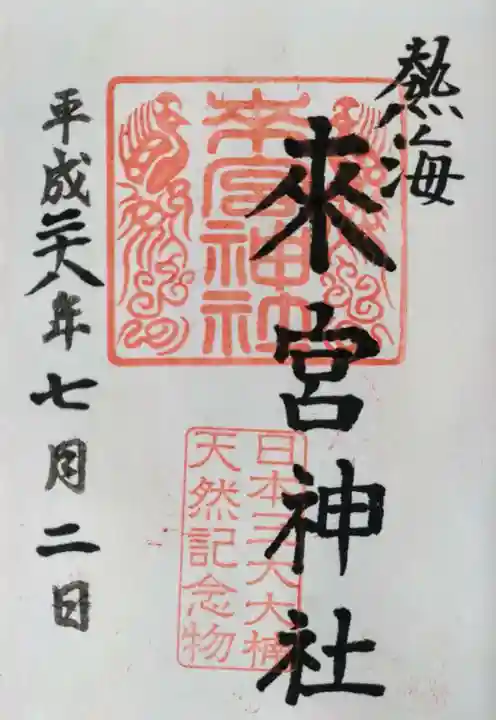 熱海
來宮神社
來宮神社
日本三大大楠
天然記念物
平成二十八年七月二日